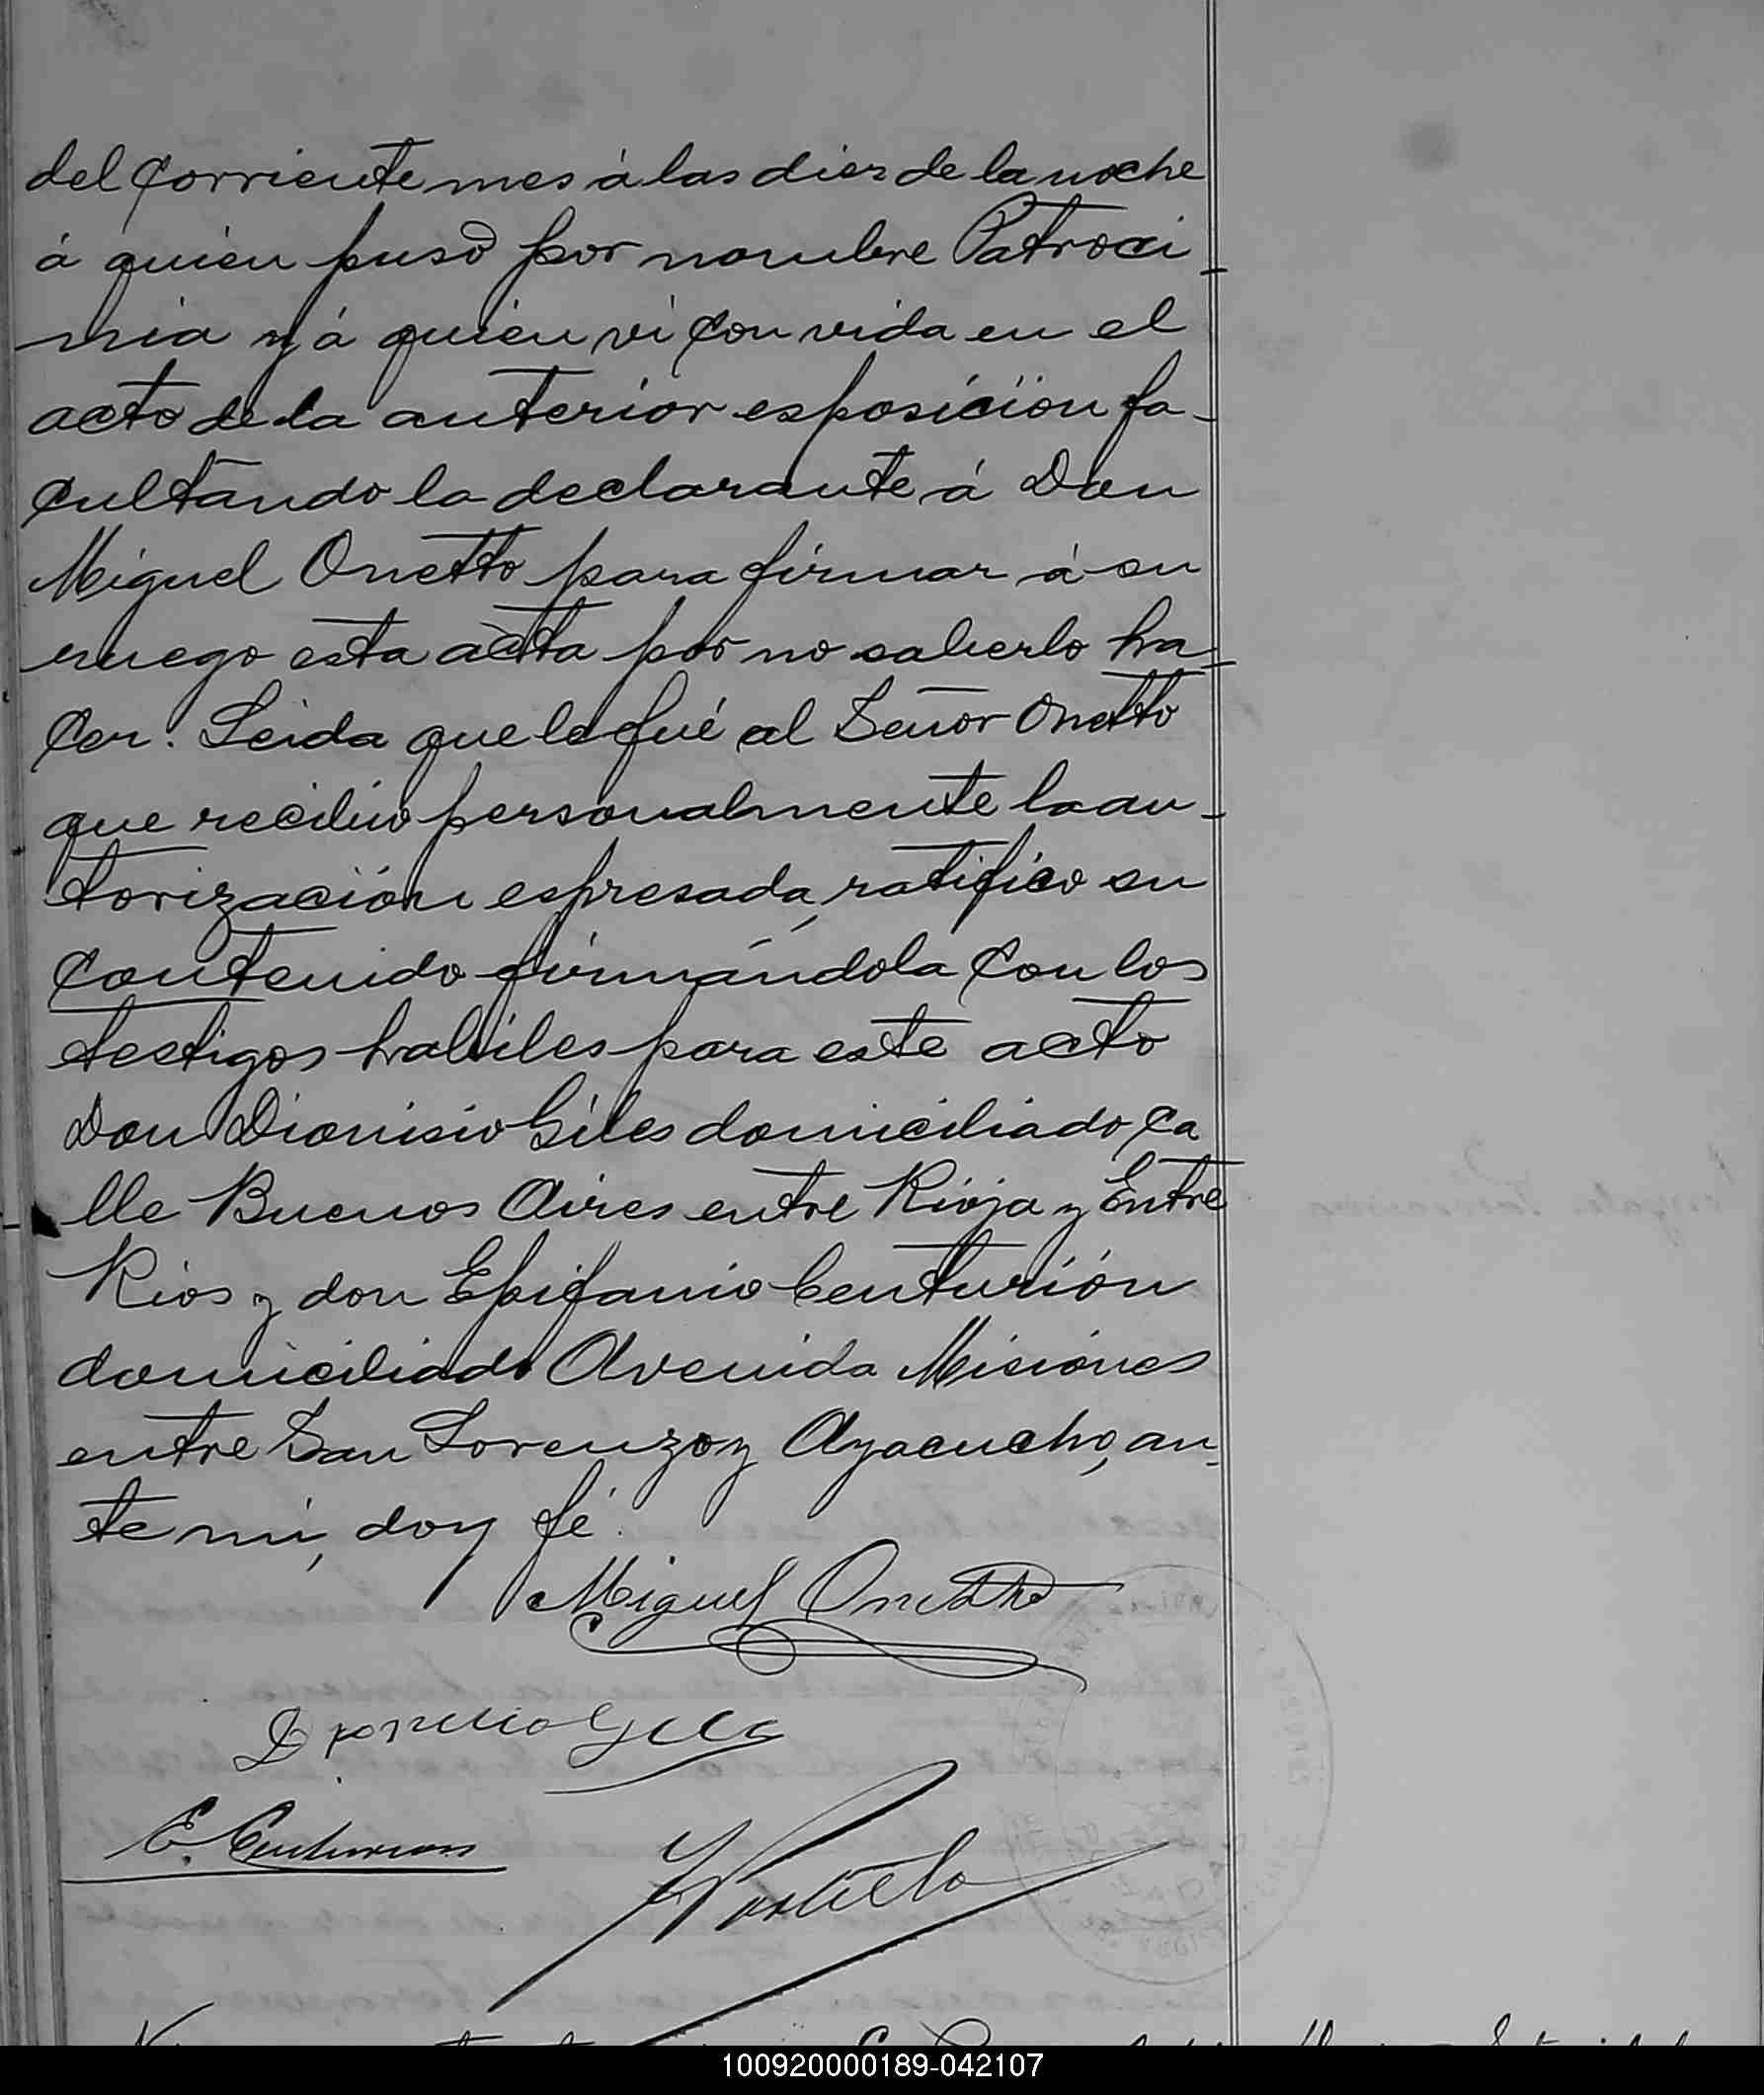 del corriente mes á las diez de la noche
á quien pusó por nombre Patroci-
nia y á quien vi con vida en el
acto de la anterior esposición fa-
cultando la declarante á Don
Miguel Onetto para firmar á su
ruego esta acta por no saberlo ha-
cer. Leida que le fué al Señor Onetto
que recibió personalmente la au-
torización espresada, ratificó su
contenido firmándola con los
testigos habiles para este acto
Don Dionisio Giles domiciliado ca
lle Buenos Aires entre Rioja y Entre
Rios y don Epifanio Centurión
domiciliado Avenida Misiónes
entre San Lorenzo y Ayacucho, an-
te mi, doy fé.
Miguel Onetto
Dionicio Giles
E. Centurion
100920000189-042107